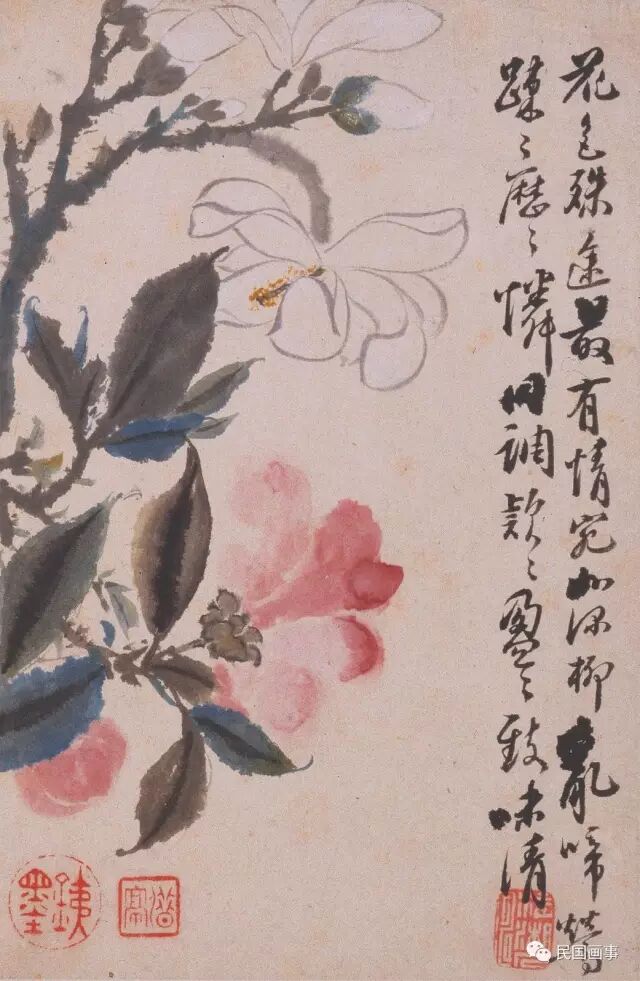 花色殊途最有情宛如深柳亂啼鶯
疎〻歷〻憐同調款〻盈〻致味清
民国画事